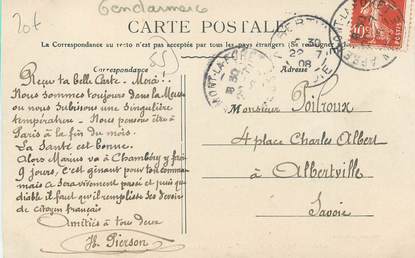 20f
Gendarmerie
CARTE POSTALE
La Correspondance au recto n'est pas acceptée par tous les pays étrangers (Se renseigner
Correspondance
Adresse
Reçu ta belle Carte - Merci!
Nous sommes toujours dans la Meuse
ou nous subissons une singulière
température - Nous pensons être à
Paris à la fin du mois.
La Santé est bonne.
Alors Marius va à Chambéry y faire
9 jours, c'est gênant pour ton commerce
mais a sera vivement passé et puis que
diable il faut qu'il remplisse ses devoirs
de citoyen français
Amitiés à tous deux
H. Pierson
Monsieur Poilroux
4 place Charles Albert
à Albertville
Savoie